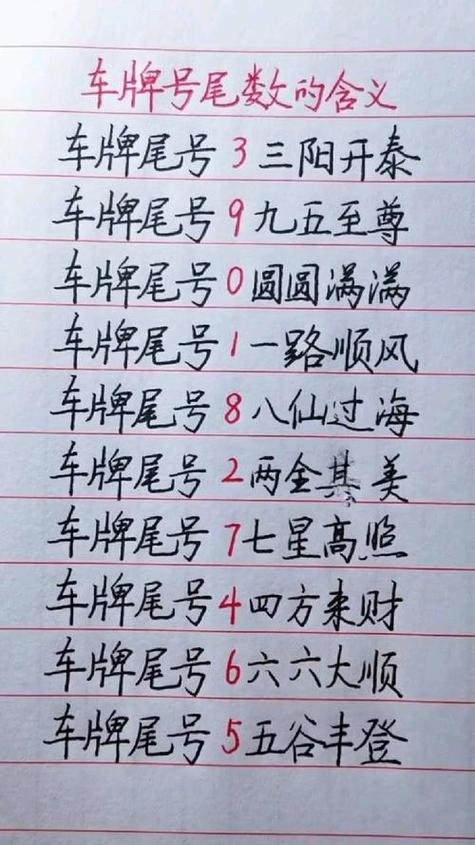 车牌号尾数的含义
车牌尾号 3 三阳开泰
车牌尾号 9 九五至尊
车牌尾号 0 圆圆满满
车牌尾号 1 一路顺风
车牌尾号 8 八仙过海
车牌尾号 2 两全其美
车牌尾号 7 七星高照
车牌尾号 4 四方来财
车牌尾号 6 六六大顺
车牌尾号 5 五谷丰登